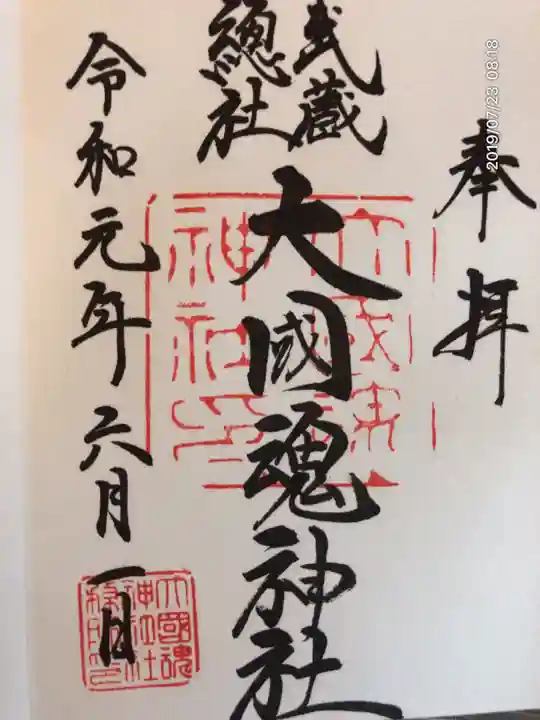 奉拝
武蔵
總社
大國魂神社
令和元年六月一日
大國魂
神社
2019/07/23 08:18